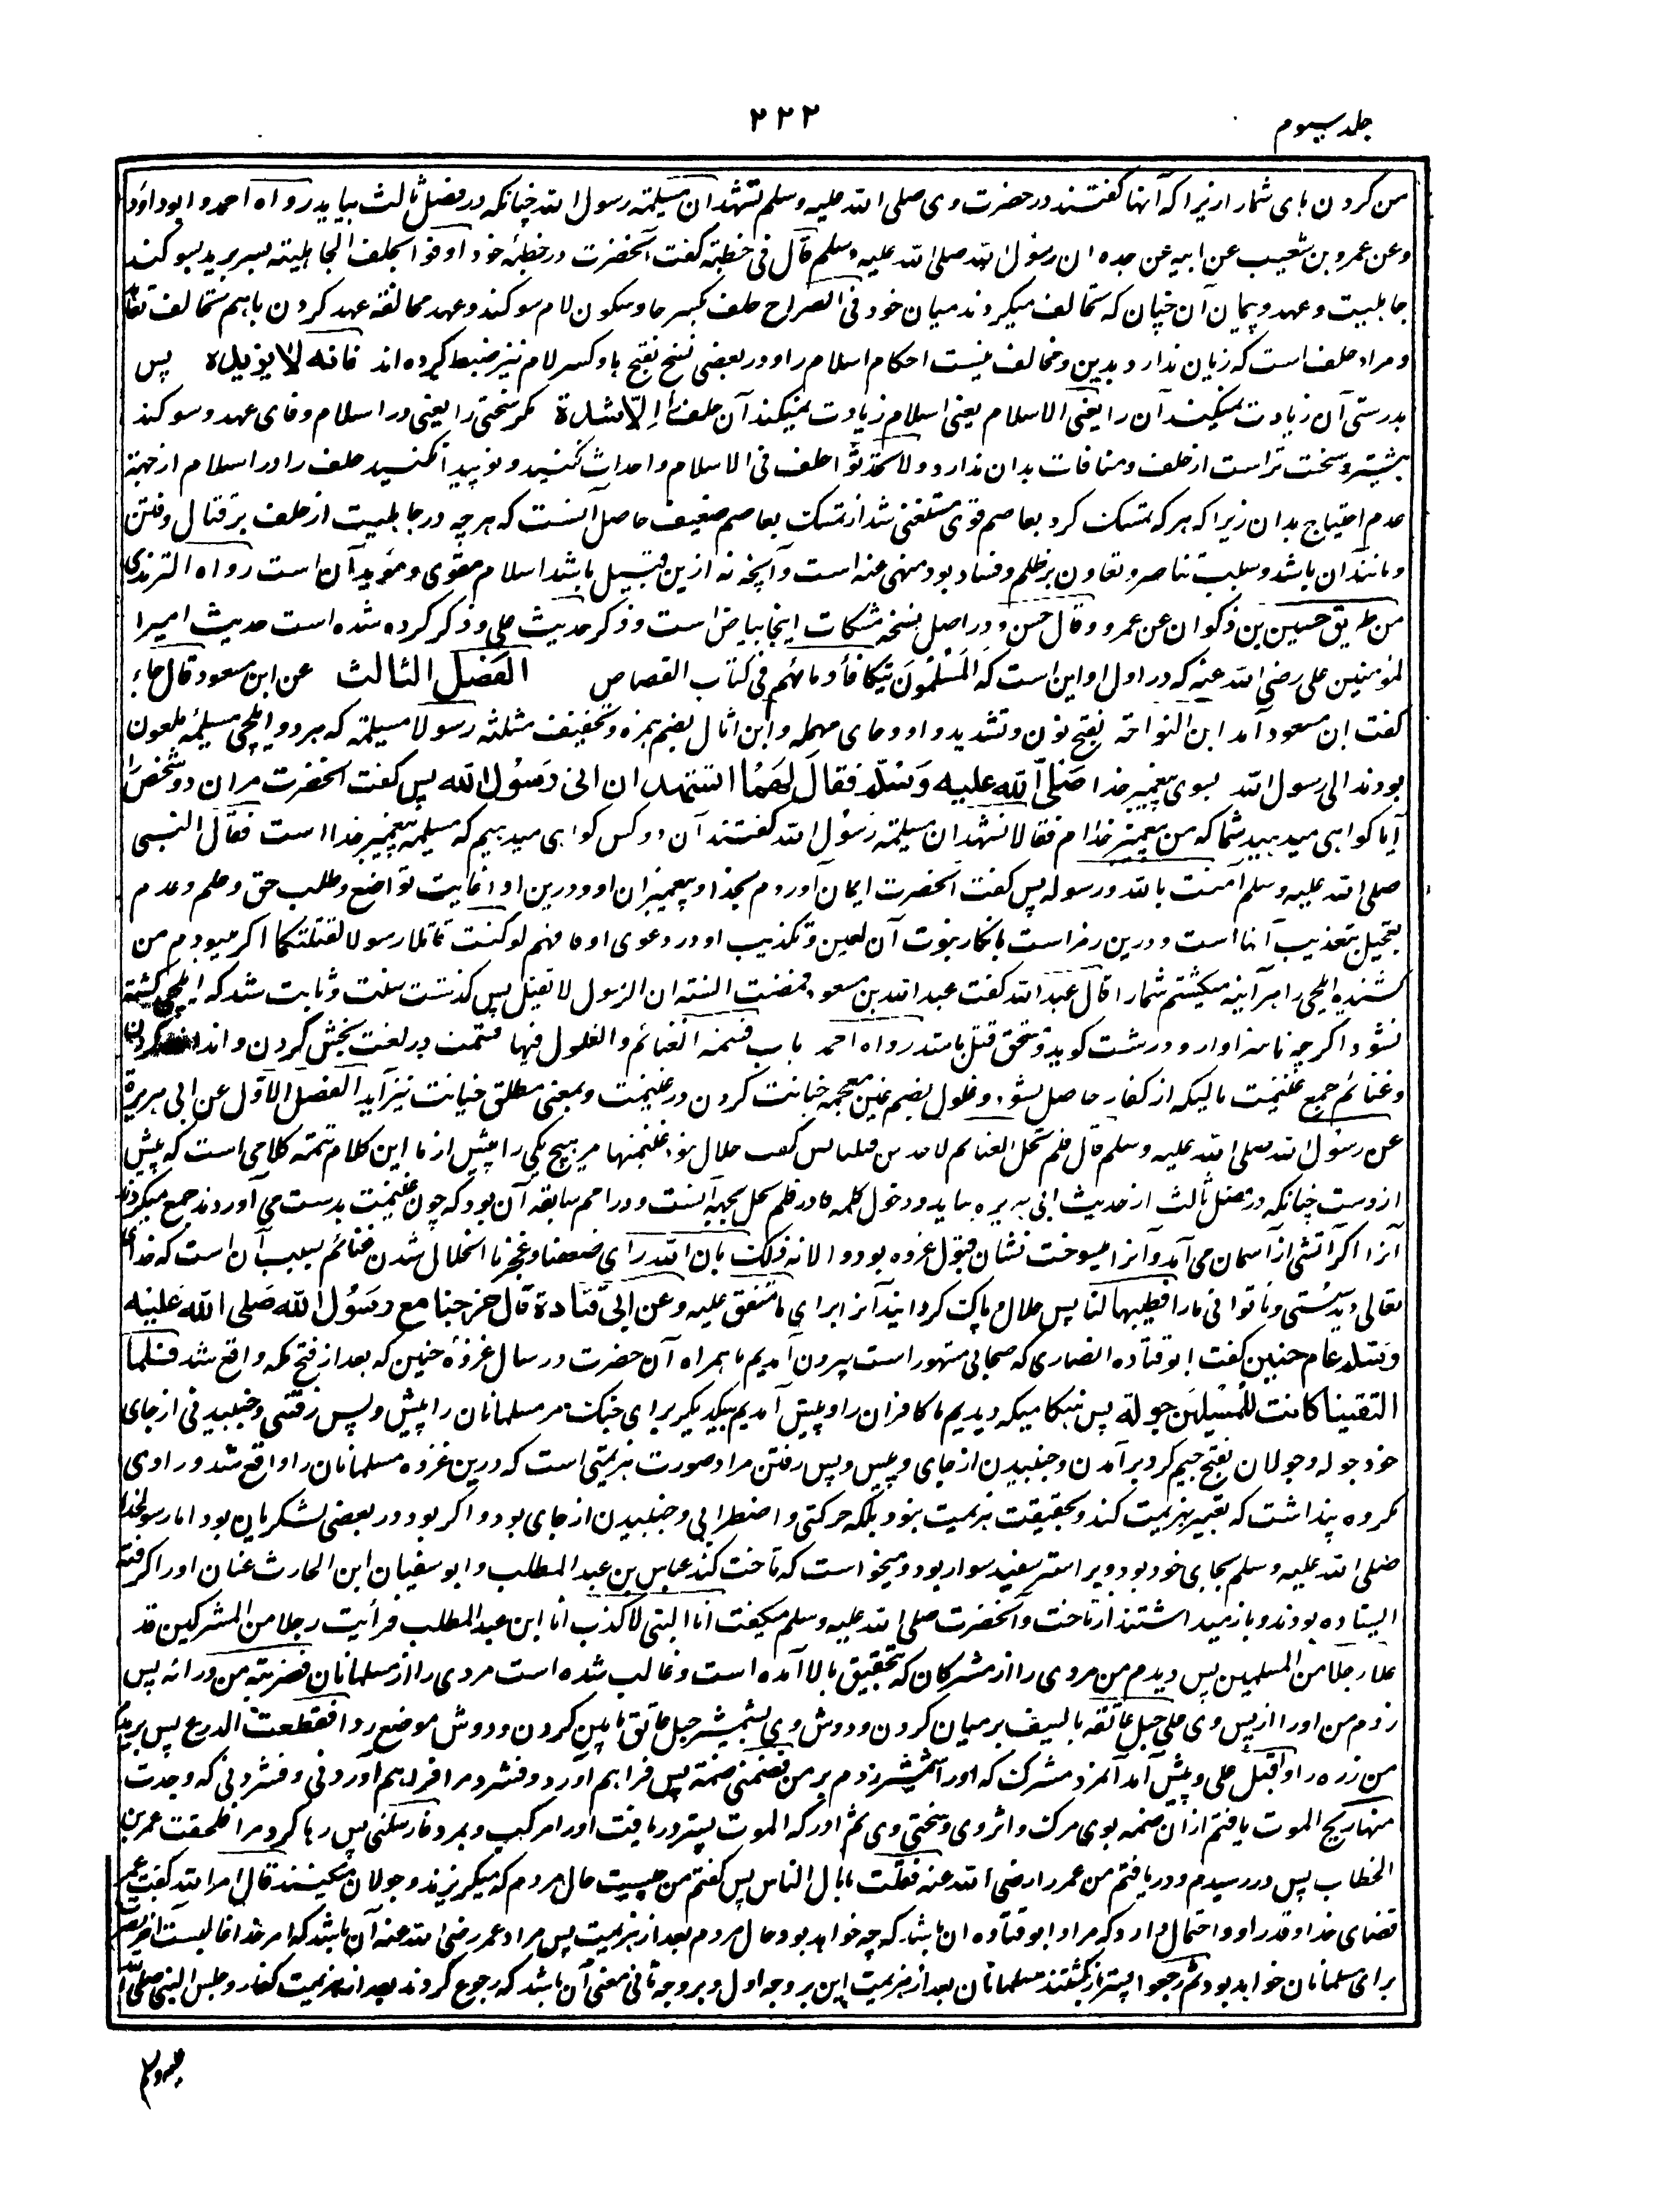 جلد سیوم
۲۲۲
من گردن های شما را زیرا که آنها گفتند در حضرت وی صلی الله علیه وسلم نشهد ان مسیلمة رسول الله چنانکه در فصل ثالث بیاید رواه احمد و ابو داود
وعن عمرو بن شعیب عن ابیه عن جده ان رسول الله صلی الله علیه وسلم قال فی خطبته گفت آنحضرت در خطبهٔ خود اوفوا بحلف الجاهلیة بسر برید سوگند
جاهلیت و عهد و پیمان آن چنان که تحالف میکردند میان خود فی الصراح حلف بکسر حا و سکون لام سوگند و عهد محالفة عهد کردن باهم تحالف
و مراد حلف است که زیان ندارد بدین و مخالف نیست احکام اسلام را و در بعضی نسخ بفتح ها و کسر لام نیز ضبط کرده اند فانه لا یزیده پس
بدرستی آن زیادت نمیکند آن را یعنی الاسلام یعنی اسلام زیادت نمیکند آن حلف را الا شدة مگر سختی را یعنی در اسلام وفای عهد و سوگند
بیشتر و سخت تر است از حلف و منافات بدان ندارد ولا تحدثوا حلفا فی الاسلام و احداث نکنید و نو پیدا نکنید حلف را در اسلام از جهة
عدم احتیاج بدان زیرا که هر که تمسک کرد بعاصم قوی مستغنی شد از تمسک بعاصم ضعیف حاصل آنست که هر چه در جاهلیت از حلف بر قتال و فتن
و مانند آن باشد و سلب تناصر و تعاون بر ظلم و فساد بود منهی عنه است و آنچه نه ازین قبیل باشد اسلام مقوی و مؤید آن است رواه الترمذی
من طریق حسین بن ذکوان عن عمرو و قال حسن و در اصل نسخه مشکات اینجا بیاض است و ذکر حدیث علی و ذکر کرده شده است حدیث امیرا
لمومنین علی رضی الله عنه که در اول او این است که المسلمون تتکافأ دمائهم فی کتاب القصاص الفصل الثالث عن ابن مسعود قال جاء
گفت ابن مسعود آمد ابن النواحة بفتح نون و تشدید واو و حای مهمله وابن اثال بضم همزه و تخفیف مثلثه رسولا مسیلمة که هر دو ایلچی مسیلمه ملعون
بودند الی رسول الله بسوی پیغمبر خدا صلی الله علیه وسلم فقال لهما اتشهدان انی رسول الله پس گفت آنحضرت مر ان دو شخص را
آیا گواهی میدهید شما که من پیغمبر خدا ام فقالا نشهد ان مسیلمة رسول الله گفتند آن دو کس گواهی میدهیم که مسیلمه پیغمبر خدا است فقال النبی
صلی الله علیه وسلم آمنت بالله ورسوله پس گفت آنحضرت ایمان آوردم بخدا و پیغمبران او و درین او اغایت تواضع و طلب حق و حلم و عدم
تعجیل بتعذیب آنها است و درین رمز است بانکار نبوت آن لعین و تکذیب او در دعوی او فافهم لو کنت قاتلا رسولا لقتلتکما اگر میبودم من
کشنده ایلچی را هر آینه میکشتم شما را قال عبد الله گفت عبد الله بن مسعود فمضت السنة ان الرسول لا یقتل پس گذشت سنت و ثابت شد که ایلچی کشته
نشود اگر چه ناسزاوار و درشت گوید و مستحق قتل باشد رواه احمد باب قسمة الغنائم والغلول فیها قسمت در لغت بخش کردن و
و غنائم جمع غنیمت مالیکه از کفار حاصل بشود و غلول بضم غین معجمه خیانت کردن در غنیمت و بمعنی مطلق خیانت نیز آید الفصل الاول عن ابی هریرة
عن رسول الله صلی الله علیه وسلم قال فلم تحل الغنائم لاحد من قبلنا پس گفت حلال نبود غنیمتها مر هیچ یکی را پیش از ما این کلام تتمه کلامی است که پیش
ازوست چنانکه در فصل ثالث از حدیث ابی هریره بیاید و دخول کلمه فا در فلم تحل بجهة آنست و در امم سابقه آن بود که چون غنیمت بدست می آوردند جمع میکردند
آنرا اگر آتشی از آسمان می آمد و آنرا میسوخت نشان قبول غزوه بود و الا نه ذلک بان الله رای ضعفنا و عجزنا انحلال شدن غنائم بسبب آن است که خدای
تعالی دید سستی و ناتوانی ما را فطیبها لنا پس حلال و پاک گردانید آنرا برای ما متفق علیه وعن ابی قتادة قال خرجنا مع رسول الله صلی الله علیه
وسلم عام حنین گفت ابو قتاده انصاری که صحابی مشهور است بیرون آمدیم ما همراه آن حضرت در سال غزوهٔ حنین که بعد از فتح مکه واقع شد فلما
التقینا کانت للمسلمین جولة پس هنگامیکه دیدیم ما کافران را و پیش آمدیم بیکدیگر برای جنگ مر مسلمانان را پیش و پس رفتنی و جنبیدنی از جای
خود جوله و جولان بفتح جیم گرد برآمدن و جنبیدن از جای و پیش و پس رفتن مراد صورت هزیمتی است که درین غزوه مسلمانان را واقع شد و راوی
مکروه پنداشت که تعبیر بهزیمت کند و بحقیقت هزیمت نبود بلکه حرکتی و اضطرابی و جنبیدن از جای بود و اگر بود در بعضی لشکریان بود اما رسول خدا
صلی الله علیه وسلم بجای خود بود و بر استر سفید سوار بود و میخواست که تاخت کند عباس بن عبد المطلب و ابو سفیان ابن الحارث عنان او را گرفته
ایستاده بودند و باز میداشتند از تاخت و آنحضرت صلی الله علیه وسلم میگفت انا النبی لا کذب انا ابن عبد المطلب فرأیت رجلا من المشرکین قد
علا رجلا من المسلمین پس دیدم من مردی را از مشرکان که بتحقیق بالا آمده است و غالب شده است مردی را از مسلمانان فضربته من ورائه پس
زدم من او را از پس وی علی حبل عاتقه بالسیف بر میان گردن و دوش وی بشمشیر حبل عاتق مابین گردن و دوش موضع ردا فقطعت الدرع پس بریدم
من زره را و اقبل علی و پیش آمد آنمرد مشرک که او را شمشیر زدم بر من فضمنی ضمة پس فراهم آورد و فشرد مرا فراهم آوردنی و فشردنی که وجدت
منها ریح الموت یافتم از ان ضمه بوی مرگ و اثر وی و سختی وی ثم ادرکه الموت پستر دریافت او را مرگ و بمرد فارسلنی پس رها کرد مرا فلحقت عمر بن
الخطاب پس در رسیدم و دریافتم من عمر را رضی الله عنه فقلت ما بال الناس پس گفتم من چیست حال مردم که میگریزند و جولان میکنند قال امر الله گفت عمر
قضای خدا و قدر او و احتمال دارد که مراد ابو قتاده ان باشد که چه خواهد بود حال مردم بعد از هزیمت پس مراد عمر رضی الله عنه آن باشد که امر خدا غالبست
برای مسلمانان خواهد بود ثم رجعوا پستر بازگشتند مسلمانان بعد از هزیمت این بر وجه اول و بر وجه ثانی معنی آن باشد که رجوع کردند بعد از هزیمت کفار و جلس النبی صلی الله